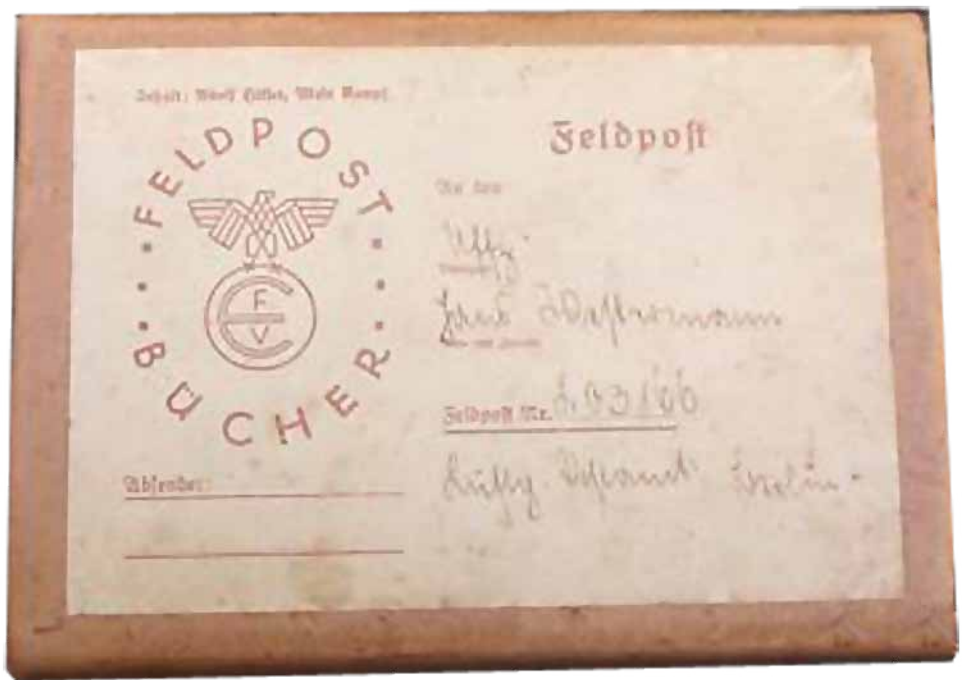 Inhalt: Adolf Hitler, Mein Kampf
FELDPOST
BÜCHER
E F V
Feldpost
An den
Uffz.
Westermann
Feldpost Nr. L 03166
Luftg. Postamt Berlin
Absender: